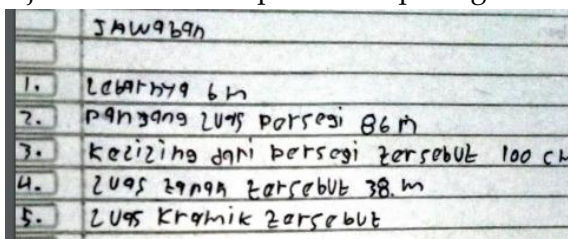 JAWaban
1. Lebarnya 6 m
2. panjang luas persegi 86 m
3. keliling dari persegi tersebut 100 cm
4. luas tanah tersebut 38. m
5. luas kramik tersebut